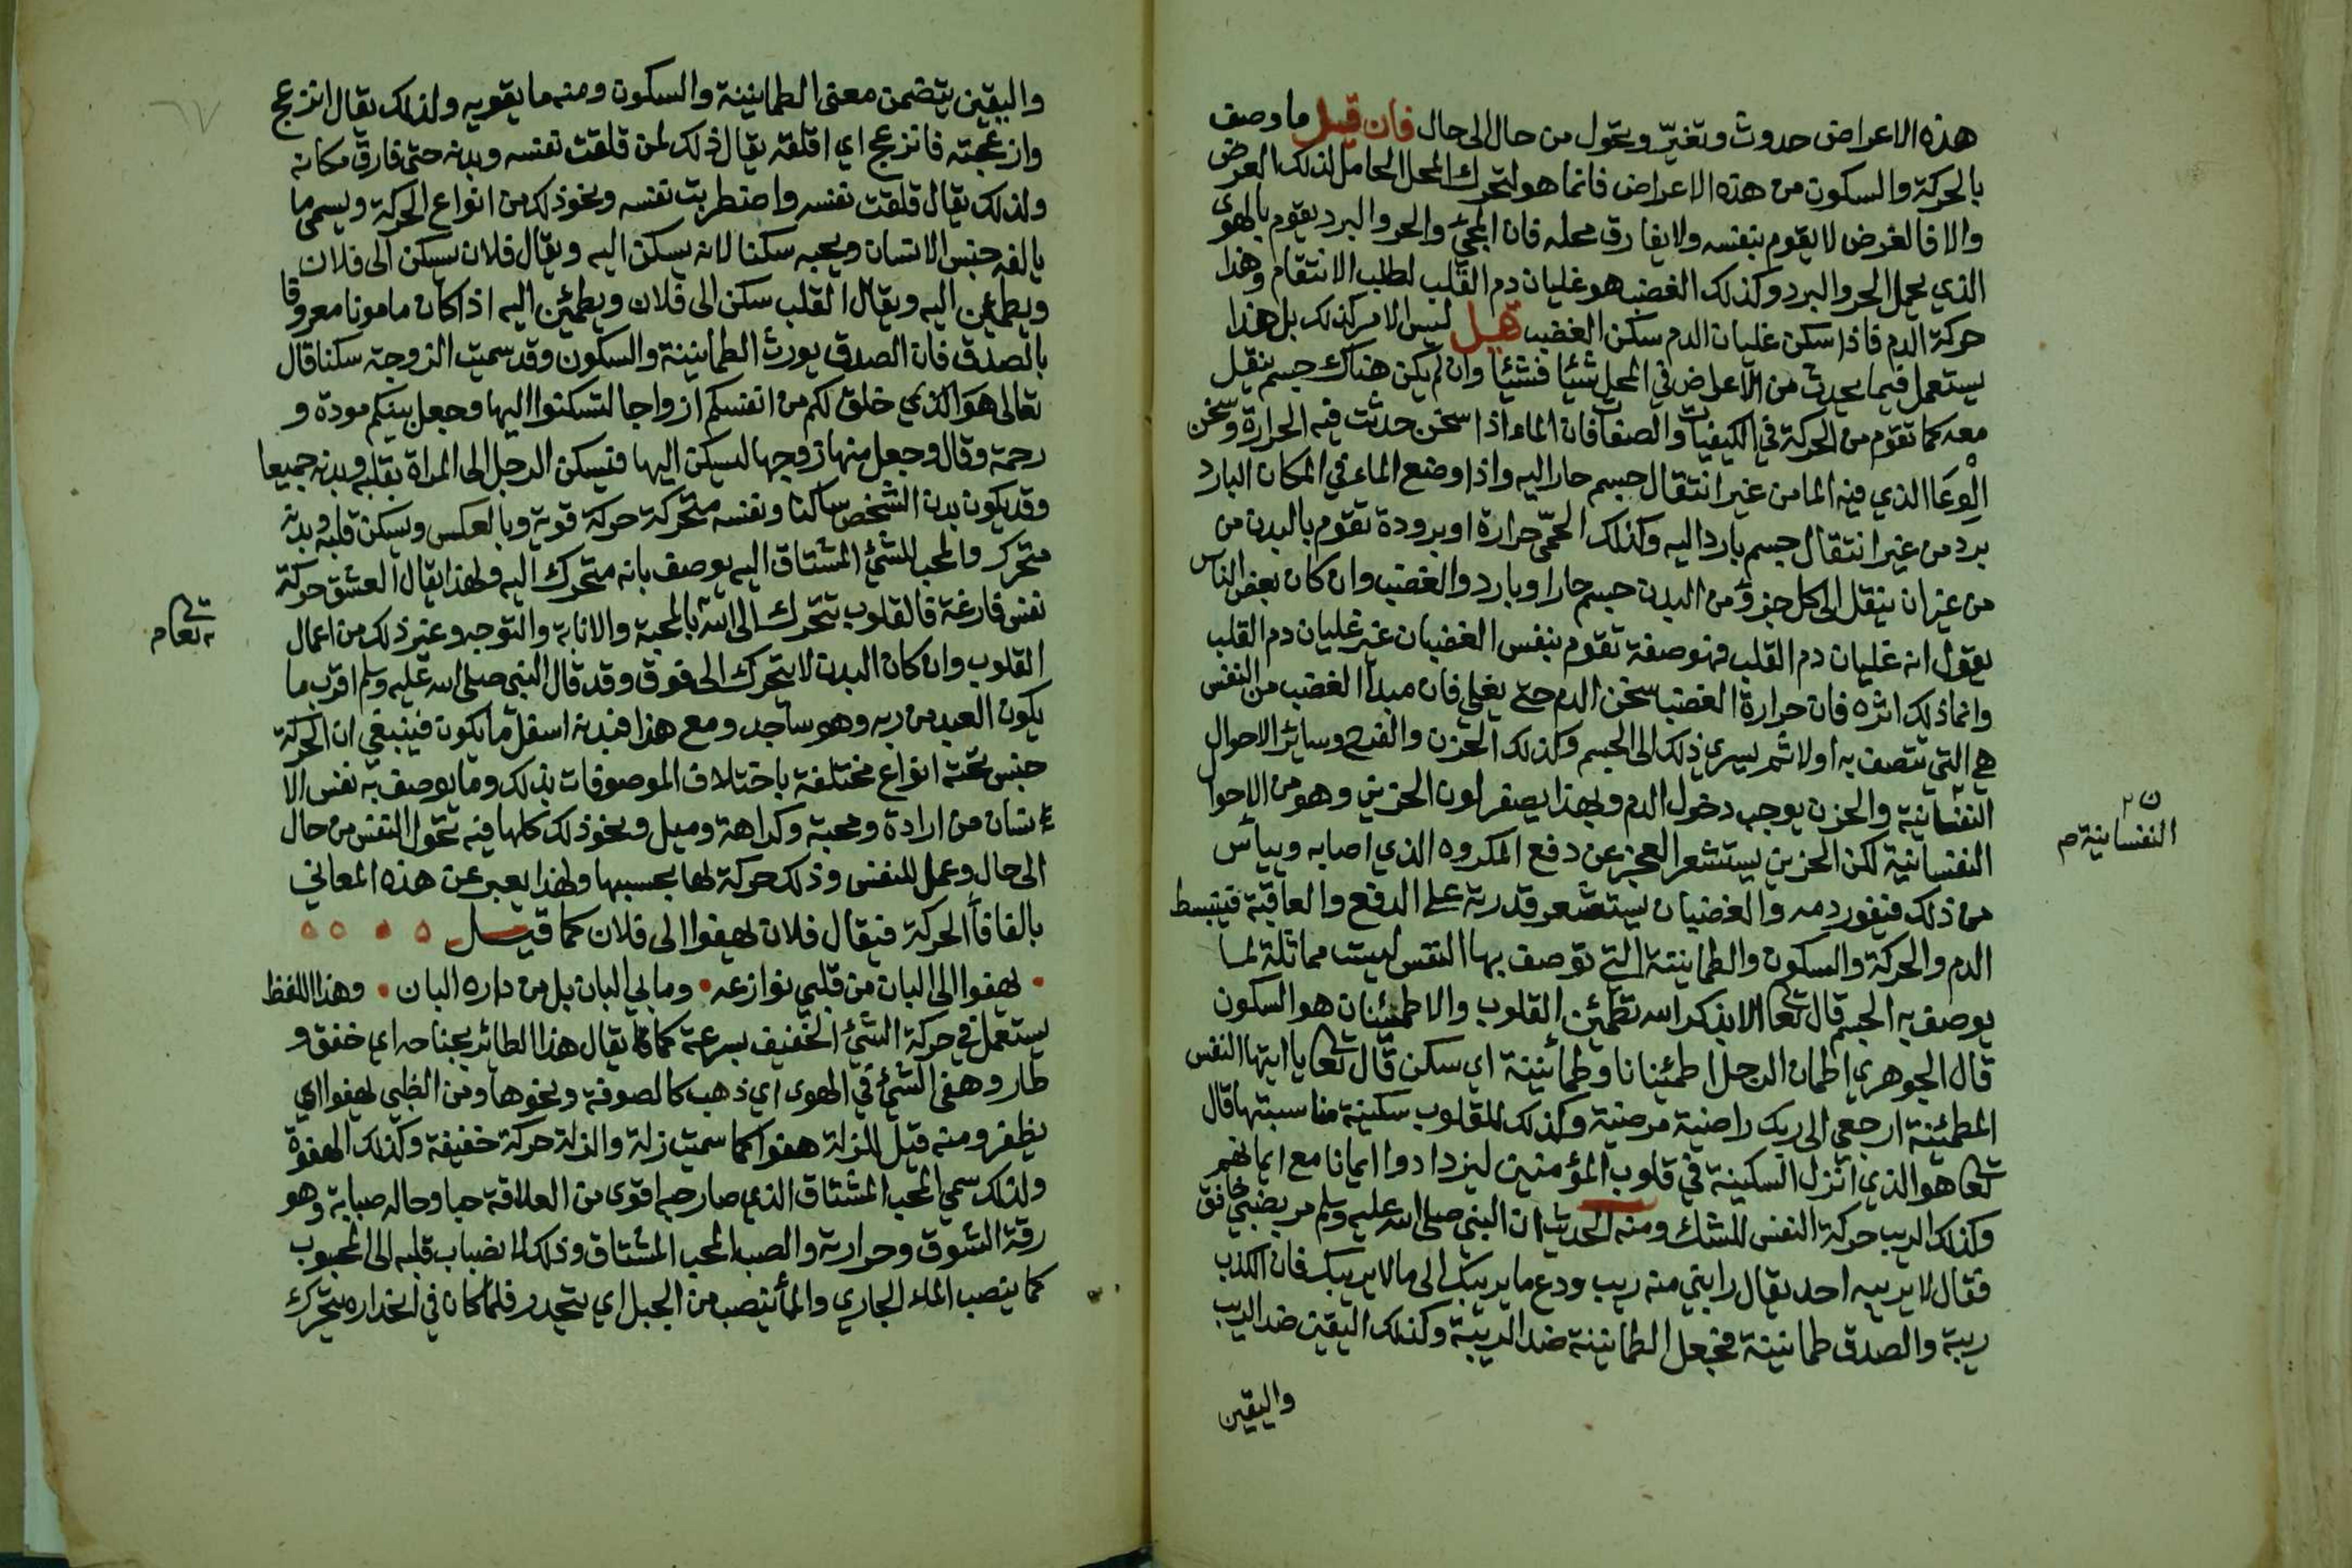 هذه الاعراض حدوث وتغيّر وتحول من حال الى حال فان قيل ما وصف
بالحركة والسكون من هذه الاعراض فانما هو لتحرك المحل الحامل لذلك العرض
والا فالعرض لا يقوم بنفسه ولا يفارق محله فان الحر والبرد يقوم بالهوى
الذي يحمل الحر والبرد وكذلك الغضب هو غليان دم القلب لطلب الانتقام وهذا
حركة الدم فاذا سكن غليان الدم سكن الغضب قيل ليس الامر كذلك بل هذا
يستعمل فيما يحدث من الاعراض في المحل شيئا فشيئا وان لم يكن هناك جسم ينقل
معه كما تقوم من الحركة في الكيفيات والصفات فان الماء اذا سخن حدثت فيه الحرارة وسخن
الوعا الذي فيه الما من غير انتقال جسم حار اليه واذا وضع الماء في المكان البارد
برد من غير انتقال جسم بارد اليه وكذلك الحمّى حرارة او برودة تقوم بالبدن من
من غير ان ينتقل الى كل جزؤ من البدن جسم حار او بارد والغضب وان كان بعض الناس
يقول انه غليان دم القلب فهو صفة تقوم بنفس الغضبان غير غليان دم القلب
وانما ذلك اثره فان حرارة الغضب تسخن الدم حتى يغلي فان مبدا الغضب من النفس
هي التي تتصف به اولا ثم يسري ذلك الى الجسم وكذلك الحزن والفرح وسائر الاحوال
النفسانية والحزن يوجب دخول الدم ولهذا يصفر لون الحزين وهو من الاحوا
ل النفسانية م
النفسانية لكن الحزين يستشعر العجز عن دفع المكروه الذي اصابه وييأس
من ذلك فيغور دمه والغضبان يستشعر قدرته على الدفع والعاقبة فينبسط
الدم والحركة والسكون والطمانينة التي توصف بها النفس ليست مماثلة لما
يوصف به الجسم قال تعا الا بذكر الله تطمئن القلوب والاطمئنان هو السكون
قال الجوهري اطمان الرجل اطمئنانا وطمانينة اي سكن قال تعا يا ايتها النفس
المطمئنة ارجعي الى ربك راضية مرضية وكذلك للقلوب سكينة مناسبتها قال
تعا هو الذي انزل السكينة في قلوب المؤمنين ليزدادوا ايمانا مع ايمانهم
وكذلك الريب حركة النفس للشك ومنه الحديث ان النبي صلى الله عليه وسلم مر بضبي حاقف
فقال لا يريبه احد يقال رابني منه ريب ودع ما يريبك الى ما لا يريبك فان الكذب
ريبة والصدق طمانينة فجعل الطمانينة ضد الريبة وكذلك اليقين ضد الريب
واليقين
واليقين يتضمن معنى الطمانينة والسكون ومنه ما يقويه ولذلك يقال انزعج
وازعجته فانزعج اي اقلقه يقال ذلك لمن قلقت نفسه وبدنه حتى فارق مكانه
ولذلك يقال قلقت نفسه واضطربت نفسه ونحو ذلك من انواع الحركة ويسمى ما
يالفه جنس الانسان ويحبه سكنا لانه يسكن اليه ويقال فلان يسكن الى فلان
ويطمان اليه ويقال القلب سكن الى فلان ويطمئن اليه اذا كان مامونا معروفا
بالصدق فان الصدق يورث الطمانينة والسكون وقد سميت الزوجة سكنا قال
تعالى هو الذي خلق لكم من انفسكم ازواجا لتسكنوا اليها وجعل بينكم مودة و
رحمة وقال وجعل منها زوجها ليسكن اليها فيسكن الرجل الى المراة بقلبه وبدنه جميعا
وقد يكون بدن الشخص ساكنا ونفسه متحركة حركة قوية وبالعكس ويسكن قلبه وبدنه
متحرك والمحب للشئ المشتاق اليه يوصف بانه متحرك اليه ولهذا يقال العشق حركة
نفس فارغة فالقلوب تتحرك الى الله بالمحبة والانابة والتوجه وغير ذلك من اعمال
القلوب وان كان البدن لا يتحرك الى فوق وقد قال النبي صلى الله عليه وسلم اقرب ما
يكون العبد من ربه وهو ساجد ومع هذا فبدنه اسفل ما يكون فينبغي ان الحركة
جنس تحته انواع مختلفة باختلاف الموصوفات بذلك وما يوصف به نفس الا
نسان من ارادة ومحبة وكراهة وميل ونحو ذلك كلها فيه تحول النفس من حال
الى حال وعمل للنفس وذلك حركة لها بحسبها ولهذا يعبر عن هذه المعاني
بالفاظ الحركة فيقال فلان يهفوا الى فلان كما قيل
يهفوا الى البان من قلبي نوازعه وما بي البان بل من داره البان وهذا اللفظ
يستعمل في حركة الشئ الخفيف بسرعة كما يقال هفا الطائر بجناحه اي خفق و
طار وهفى الشئ في الهوى اي ذهب كالصوفة ونحوها ومن الظبي يهفوا اي
يظفر ومنه قيل للزلة هفوا كما سميت زلة والزلة حركة خفيفة وكذلك الهفوة
ولذلك سمي المحب المشتاق الذي صار حبه اقوى من العلاقة حبا وحاله صبابة وهو
رقة الشوق وحرارته والصب المحب المشتاق وذلك لانضباب قلبه الى المحبوب
كما ينصب الماء الجاري والما ينصب من الجبل اي يتحدر فلما كان في انحداره يتحرك